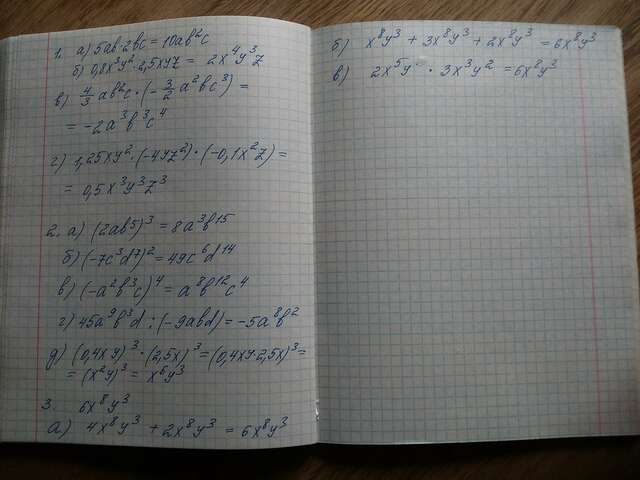 1. а) 5ab·2bc = 10ab²c
б) 0,8x³y²·2,5xyz = 2x⁴y³z
в) 4/3 ab²c·(-3/2 a²bc³) =
= -2a³b³c⁴
г) 1,25xy²·(-4yz²)·(-0,1x²z) =
= 0,5x³y³z³
2. а) (2ab⁵)³ = 8a³b¹⁵
б) (-7c³d⁷)² = 49c⁶d¹⁴
в) (-a²b³c)⁴ = a⁸b¹²c⁴
г) 45a⁹b³d : (-9abd) = -5a⁸b²
д) (0,4xy)³·(2,5x)³ = (0,4xy·2,5x)³ =
= (x²y)³ = x⁶y³
3. 6x⁸y³
а) 4x⁸y³ + 2x⁸y³ = 6x⁸y³
б) x⁸y³ + 3x⁸y³ + 2x⁸y³ = 6x⁸y³
в) 2x⁵y · 3x³y² = 6x⁸y³